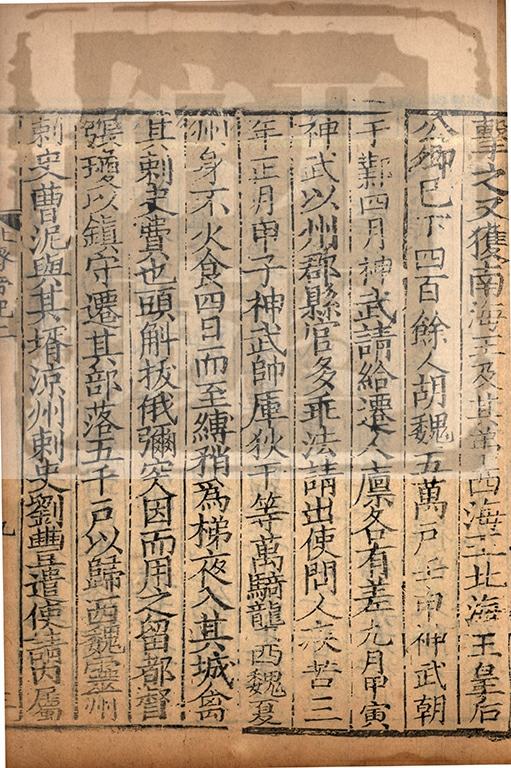 擊之又獲南海王及其弟西海王北海王皇后
公卿已下四百餘人胡魏五萬戶壬申神武朝
于鄴四月神武請給遷人廩各有差九月甲寅
神武以州郡縣官多乖法請出使問人疾苦三
年正月甲子神武帥庫狄干等萬騎襲西魏夏
州身不火食四日而至縛稍為梯夜入其城禽
其刺史費也頭斛拔俄彌突因而用之留都督
張瓊以鎮守遷其部落五千戶以歸西魏靈州
刺史曹泥與其壻涼州刺史劉豐遣使請內屬